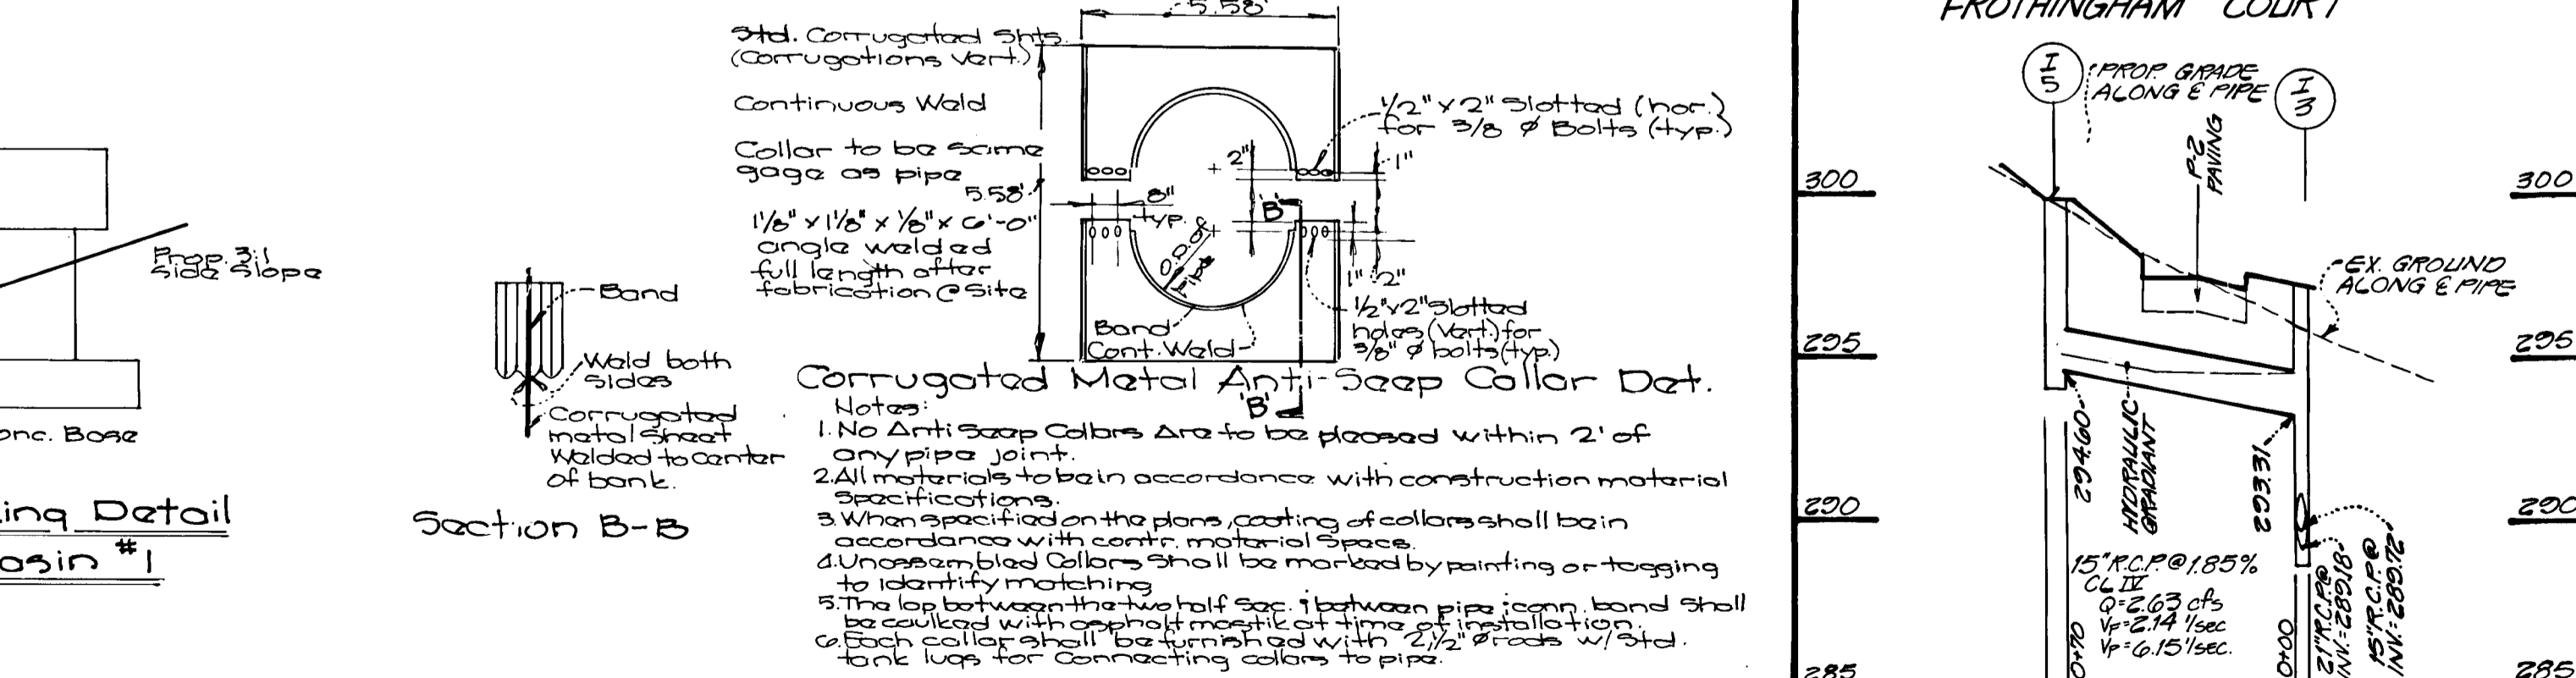 Prop. 3:1
Side Slope
onc. Base
ing Detail
asin #1
Band
Weld both
Sides
Corrugated
metal sheet
Welded to center
of bank.
Section B-B
5.58'
Std. Corrugated Shts.
(Corrugations Vert.)
Continuous Weld
Collar to be same
gage as pipe
5.58'
1 1/8" x 1 1/8" x 1/8" x 6'-0"
angle welded
full length after
fabrication @ Site
8"
typ.
2"
1/2" x 2" Slotted (hor.)
for 3/8 Ø Bolts (typ.)
1"
'B'
1" 2"
1/2" x 2" Slotted
holes (Vert.) for
3/8" Ø bolts (typ.)
Band
Cont. Weld
'B'
Corrugated Metal Anti-Seep Collar Det.
Notes:
1. No Anti Seep Collars Are to be pleased within 2' of
any pipe joint.
2. All materials to be in accordance with construction material
Specifications.
3. When specified on the plans, coating of collars shall be in
accordance with contr. material Specs.
4. Unassembled Collars Shall be marked by painting or tagging
to identify matching
5. The lap between the two half Sec. & between pipe & conn. band Shall
be caulked with asphalt mastik at time of installation.
6. Each collar shall be furnished with 2, 1/2" Ø rods w/ Std.
tank lugs for Connecting collars to pipe.
FROTHINGHAM COURT
I
5
PROP. GRADE
ALONG ℄ PIPE
I
3
P-2
PAVING
300
300
EX. GROUND
ALONG ℄ PIPE
295
295
294.60
HYDRAULIC
GRADIANT
293.31
290
290
15" R.C.P. @ 1.85%
CL IV
Q=2.63 cfs
VF=2.14 '/sec
VP=6.15'/sec.
0+70
0+00
21" R.C.P. @
INV.=289.18
15" R.C.P. @
INV.=289.72
285
285